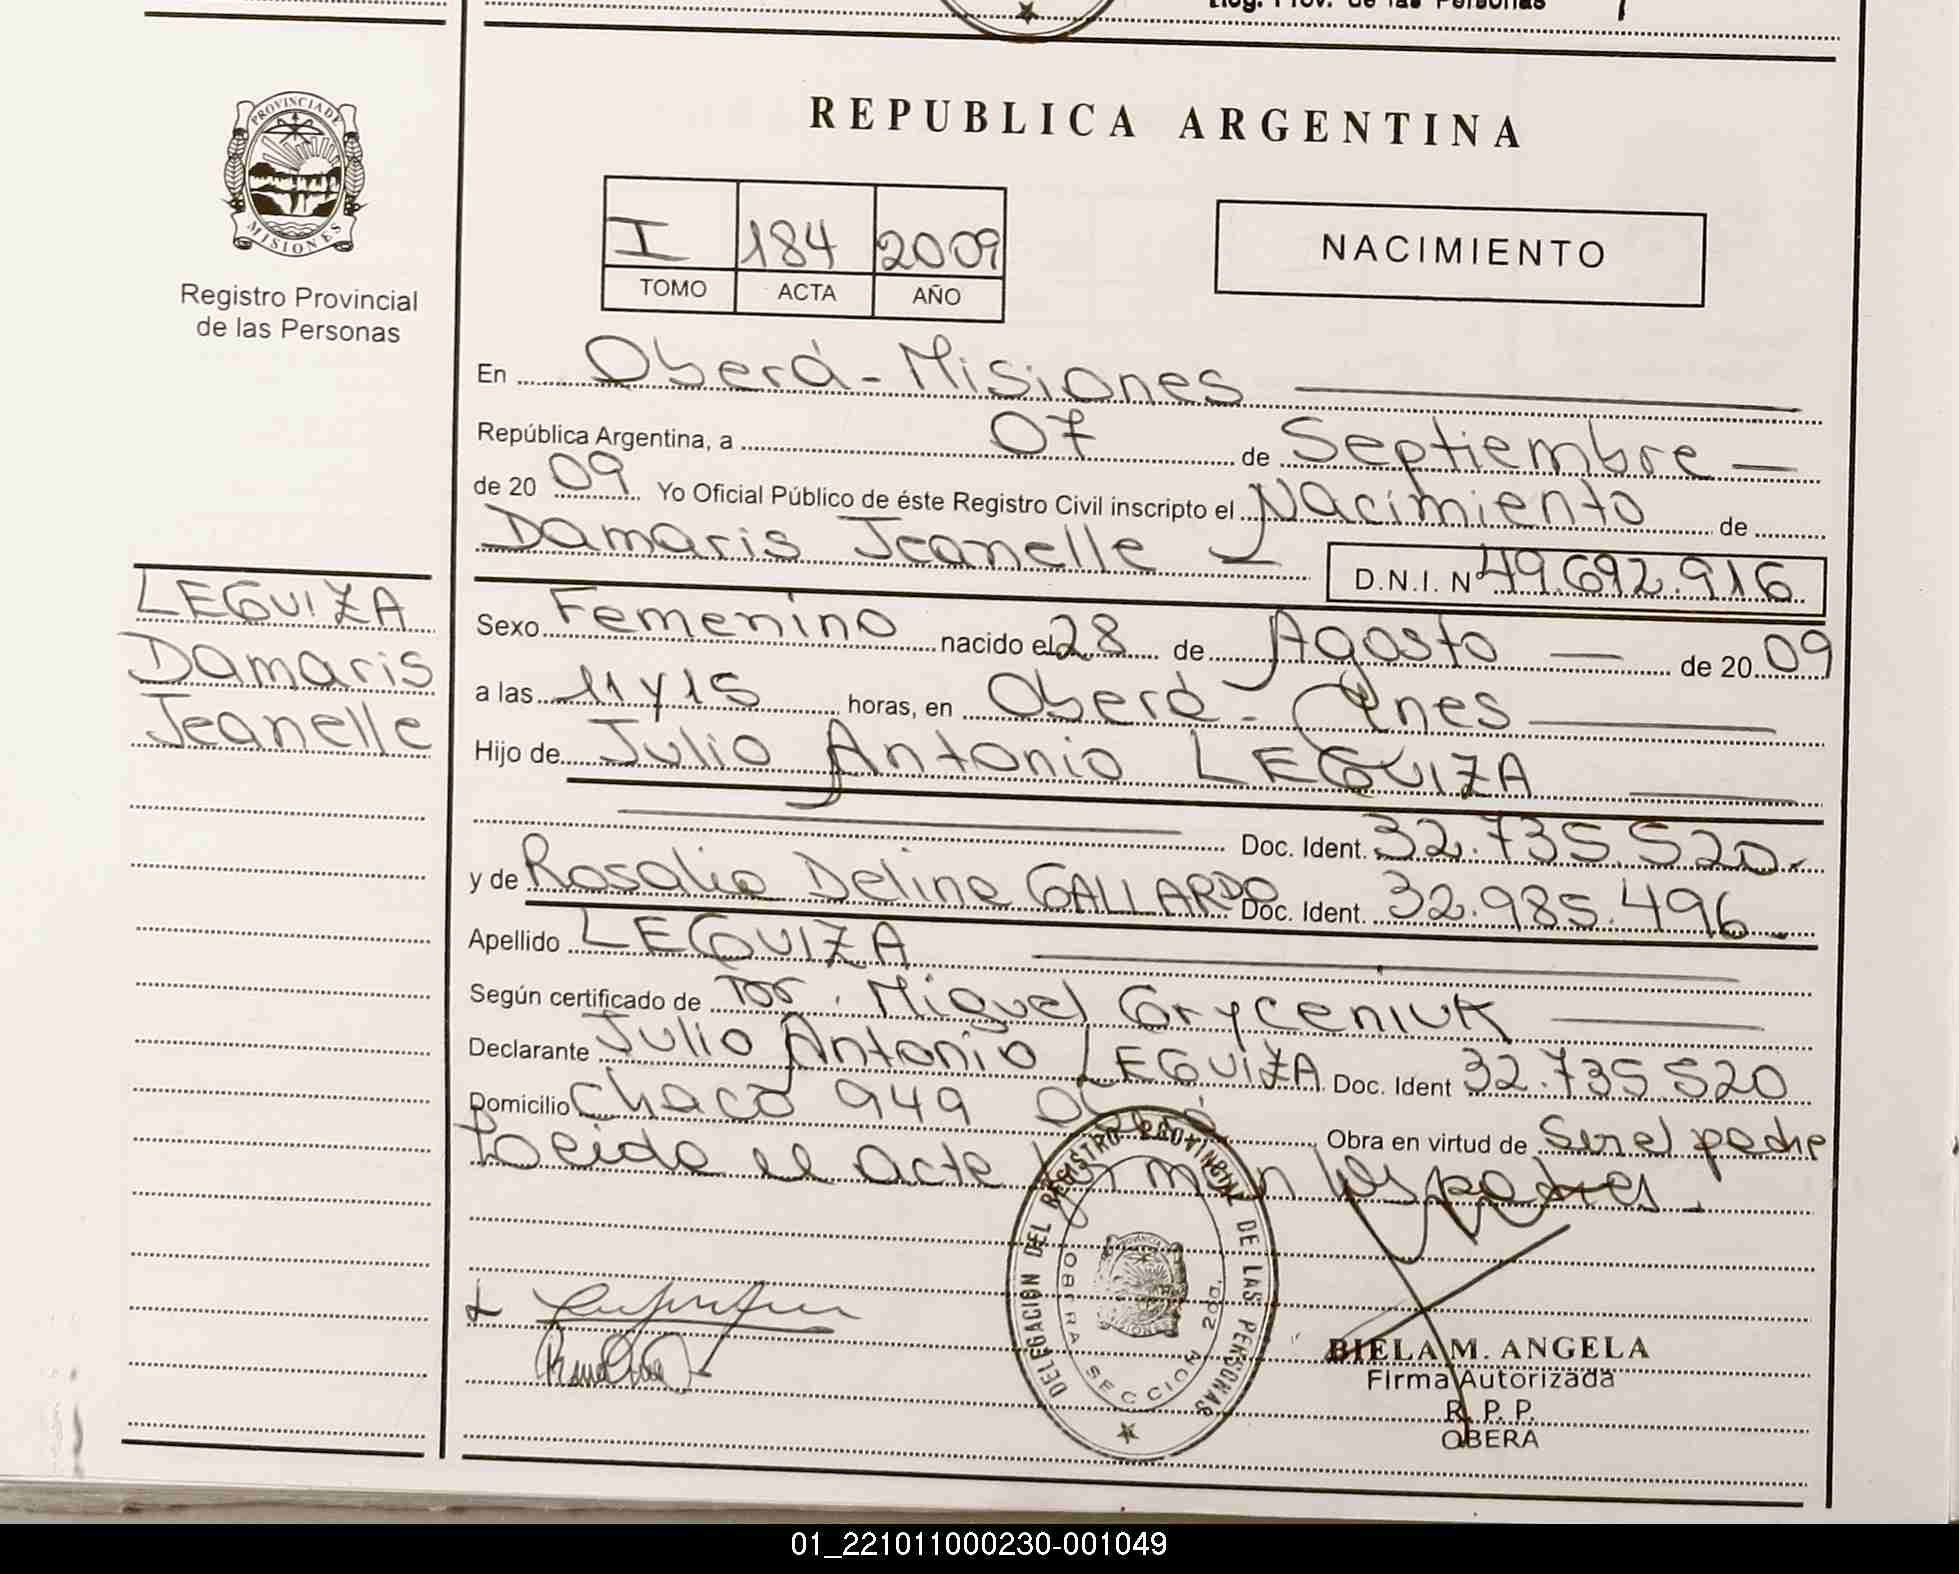 Reg. Prov. de las Personas
PROVINCIA DE
MISIONES
Registro Provincial
de las Personas
REPUBLICA ARGENTINA
I 184 2009
TOMO ACTA AÑO
NACIMIENTO
En Oberá - Misiones
República Argentina, a 07 de Septiembre
de 20 09 Yo Oficial Público de éste Registro Civil inscripto el Nacimiento de
Damaris Jeanelle D.N.I. Nº 49.692.916
LEGUIZA
Damaris
Jeanelle
Sexo Femenino nacido el 28 de Agosto de 20 09
a las 11 y 15 horas, en Oberá -
Hijo de Julio Antonio LEGUIZA
Doc. Ident. 32.735.520.-
y de Rosalia Delina GALLARDO Doc. Ident. 32.985.496.-
Apellido LEGUIZA
Según certificado de Miguel Gryceniuk
Declarante Julio Antonio LEGUIZA Doc. Ident 32.735.520
Domicilio Chaco 949 Oberá Obra en virtud de Ser el padre
Leida el acta firman los padres.
DELEGACION DEL REGISTRO PROVINCIAL DE LAS PERSONAS
OBERA SECCION 2da.
BIELA M. ANGELA
Firma Autorizada
R. P. P.
OBERA
01_221011000230-001049